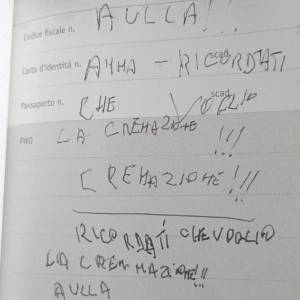 AULLA!!
Codice fiscale n.
Carta d'identità n. AMMA - RICORDATI
scad.
Passaporto n. CHE VOGLIO
scad.
PWD LA CREMAZIONE
!!!
CREMAZIONE!!!
RICORDATI CHE VOGLIO
LA CREMAZIONE!!!
AULLA